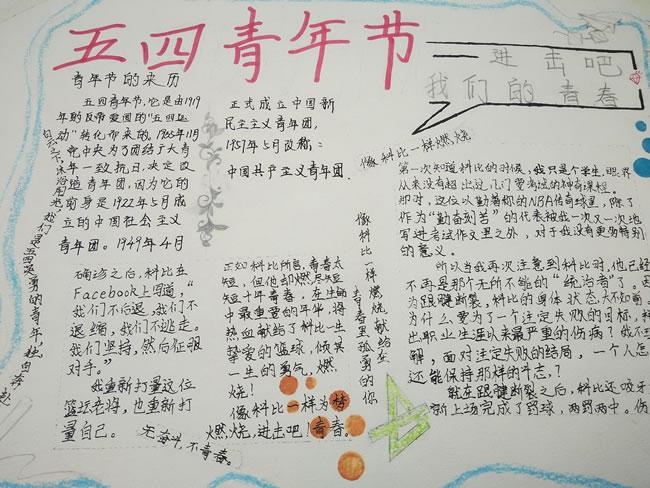 五四青年节
进击吧
我们的青春
青年节的来历
五四青年节,它是由1919
年的反帝爱国的“五四运
动”转化而来的,1935年11月
党中央为了团结广大青
年一致抗日,决定改
造青年团,因为它的
前身是1922年5月成
立的中国社会主义
青年团。1949年4月
正式成立中国新
民主主义青年团,
1957年5月改称:
中国共产主义青年团
像科比一样燃烧
第一次知道科比的时候,我只是个学生,眼界
从来没有超出过几门要考试的神奇课程。
那时,这位以勤奋称的NBA传奇球星,除了
作为“勤奋刻苦”的代表被我一次又一次地
写进考试作文里之外,对于我没有更多特别
的意义。
所以当我再次注意到科比时,他已经
不再是那个无所不能的“统治者”了。因
为跟腱断裂,科比的身体状态大不如前。
为什么要为了一个注定失败的目标,
出职业生涯以来最严重的伤病?我不
解,面对注定失败的结局,一个人怎
还能保持那样的斗志?
就在跟腱断裂之后,科比还咬牙
新上场完成了罚球,两罚两中。伤
确诊之后,科比在
Facebook上写道,“
我们不后退,我们不
退缩,我们不逃走。
我们坚持,然后征服
对手。”
我重新打量这位
篮坛老将,也重新打
量自己。
正如科比所言,青春太
短,但他却燃尽短
短十年青春,在生命
中最重要的年华,将
热血献给了科比一生
挚爱的篮球,倾其
一生的勇气,燃
烧!
像科比一样为梦
燃烧,进击吧!青春。
无奋斗,不青春。
像科比一样燃烧献给在
青春里孤勇的你